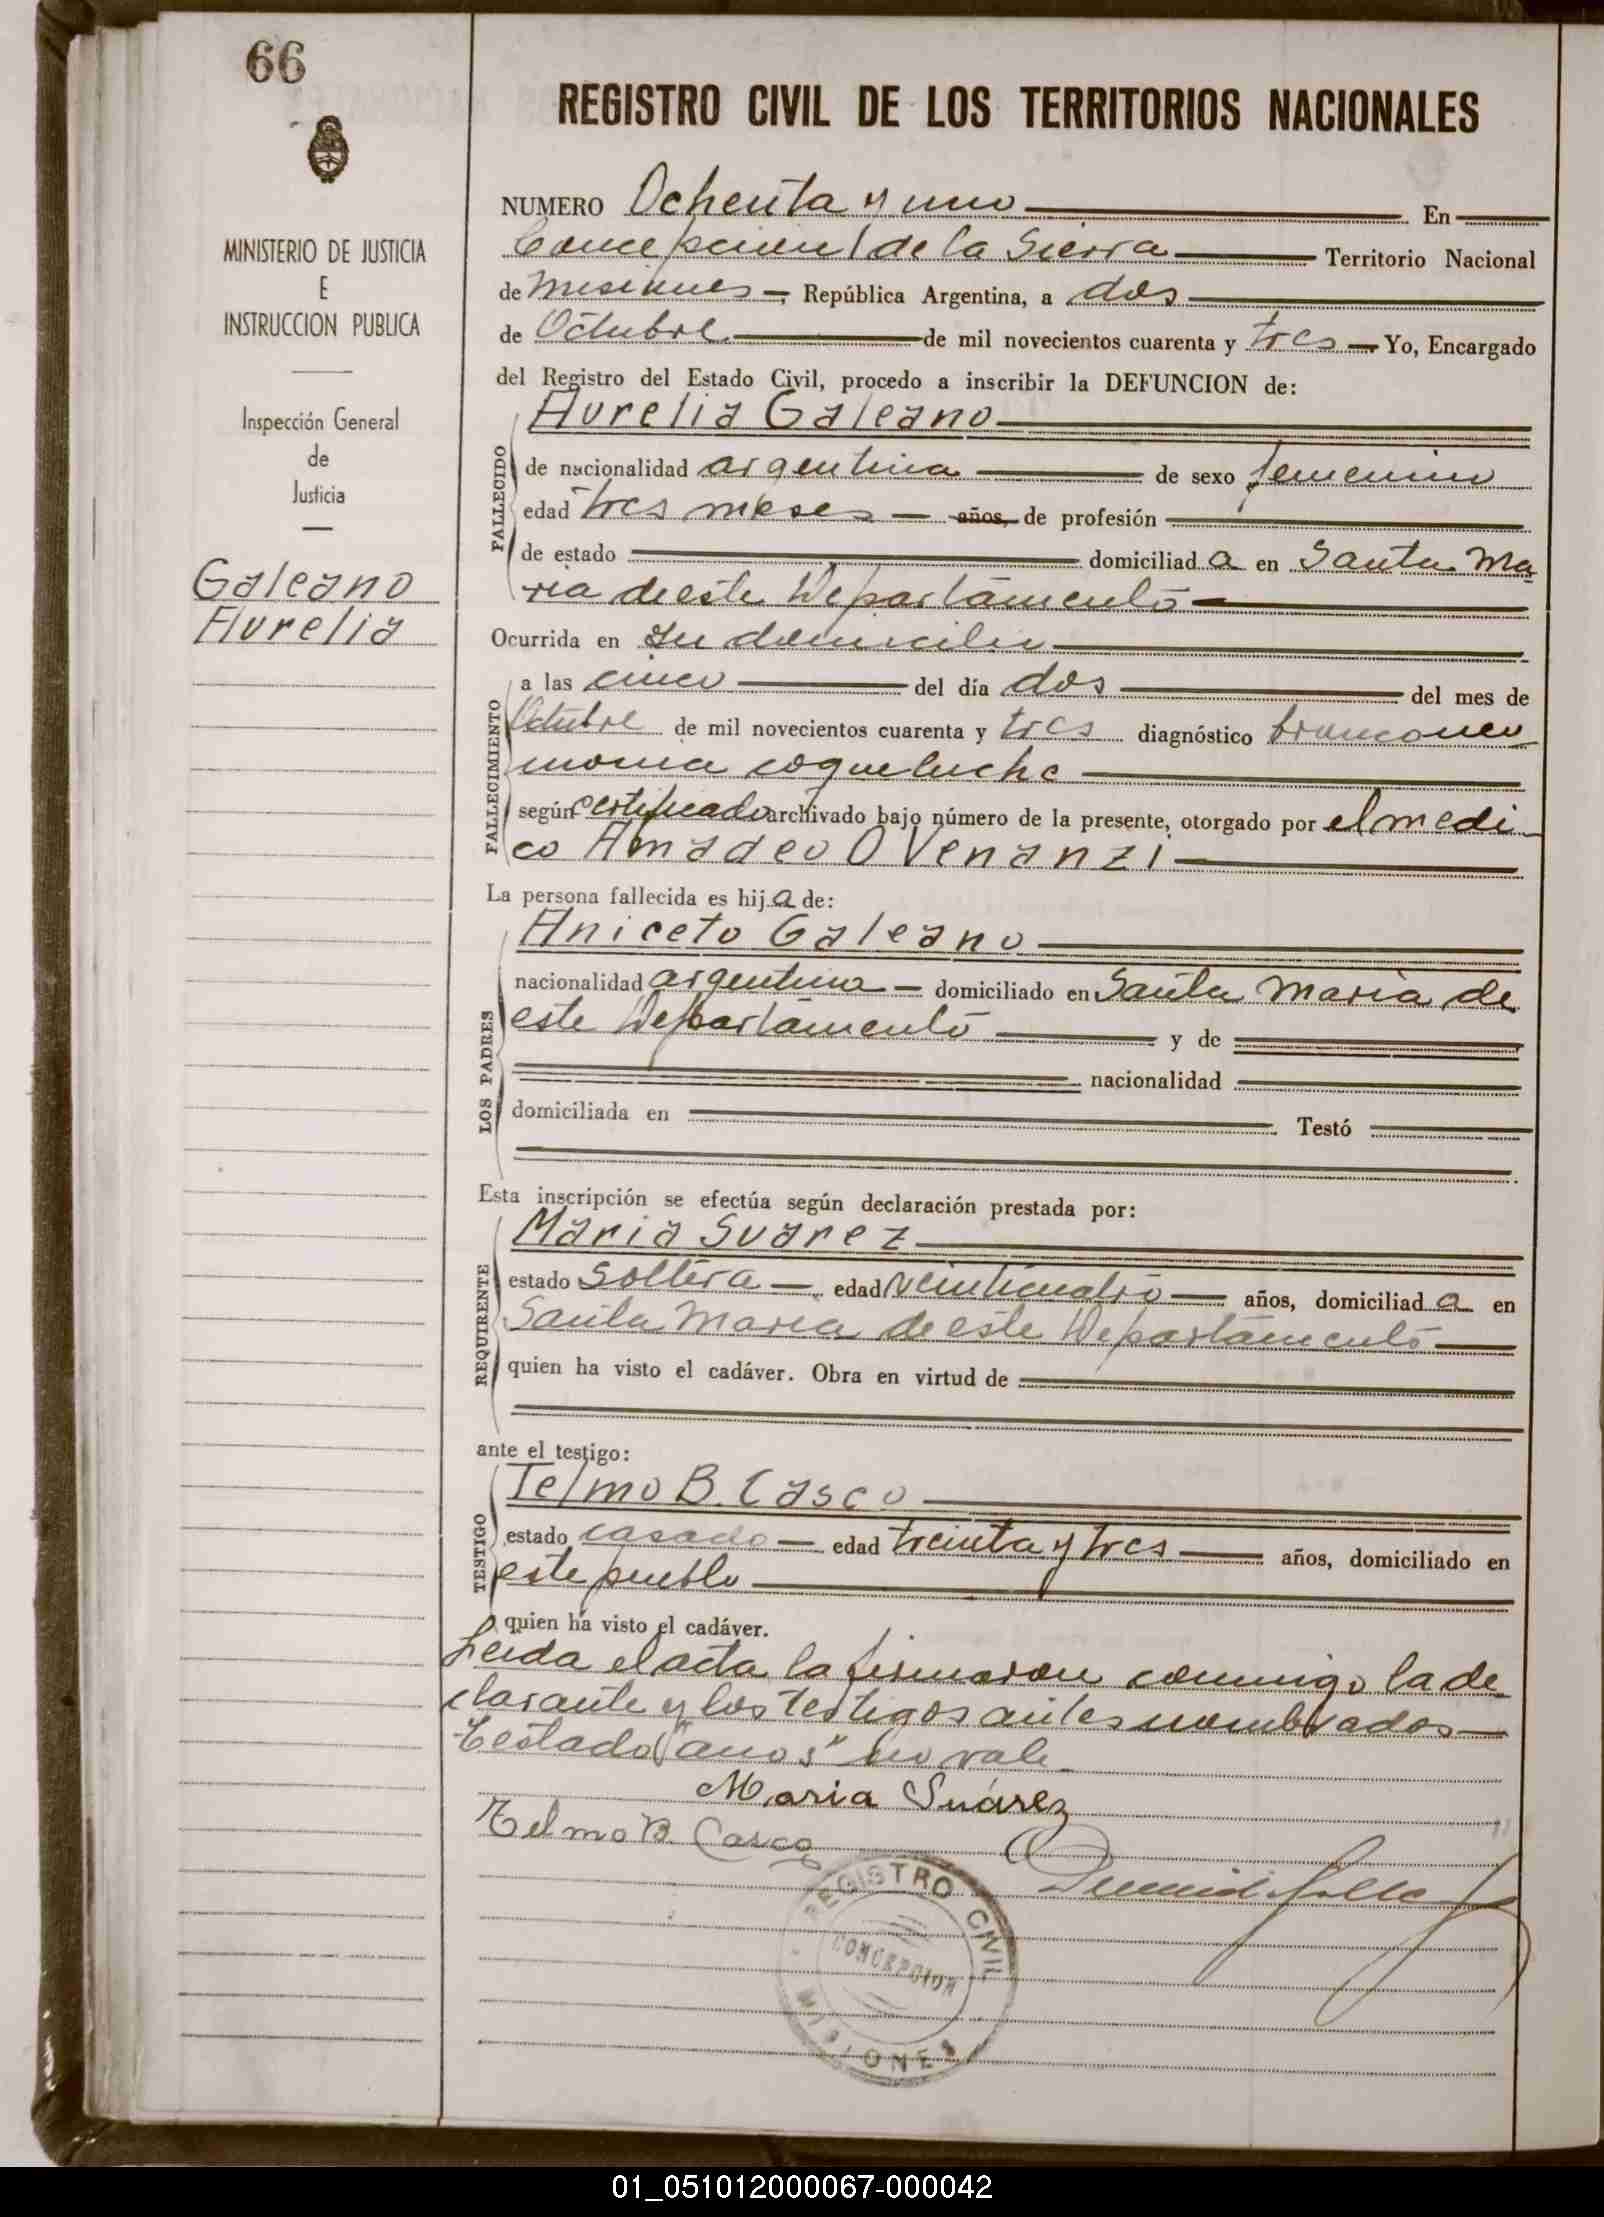 66
REGISTRO CIVIL DE LOS TERRITORIOS NACIONALES
MINISTERIO DE JUSTICIA
E
INSTRUCCION PUBLICA
Inspección General
de
Justicia
Galeano
Aurelia
NUMERO Ochenta y uno En
Concepcion de la Sierra Territorio Nacional
de Misiones República Argentina, a dos
de Octubre de mil novecientos cuarenta y tres Yo, Encargado
del Registro del Estado Civil, procedo a inscribir la DEFUNCION de:
Aurelia Galeano
FALLECIDO
de nacionalidad argentina de sexo femenino
edad tres meses años, de profesión
de estado domiciliad a en Santa Ma
ria de este Departamento
Ocurrida en su domicilio
FALLECIMIENTO
a las cinco del día dos del mes de
Octubre de mil novecientos cuarenta y tres diagnóstico bronconeu
monia coqueluche
según certificado archivado bajo número de la presente, otorgado por el medi
co Amadeo O Venanzi
La persona fallecida es hij a de:
LOS PADRES
Aniceto Galeano
nacionalidad argentina domiciliado en Santa Maria de
este Departamento y de
nacionalidad
domiciliada en Testó
Esta inscripción se efectúa según declaración prestada por:
REQUIRENTE
Maria Suarez
estado soltera edad veinticuatro años, domiciliad a en
Santa Maria de este Departamento
quien ha visto el cadáver. Obra en virtud de
ante el testigo:
TESTIGO
Telmo B. Casco
estado casado edad treinta y tres años, domiciliado en
este pueblo
quien ha visto el cadáver.
Leida el acta la firmaron conmigo la de
clarante y los testigos antes nombrados
Testado "años" no vale
Maria Suárez
Telmo B. Casco
REGISTRO CIVIL
CONCEPCION
MISIONES
01_051012000067-000042